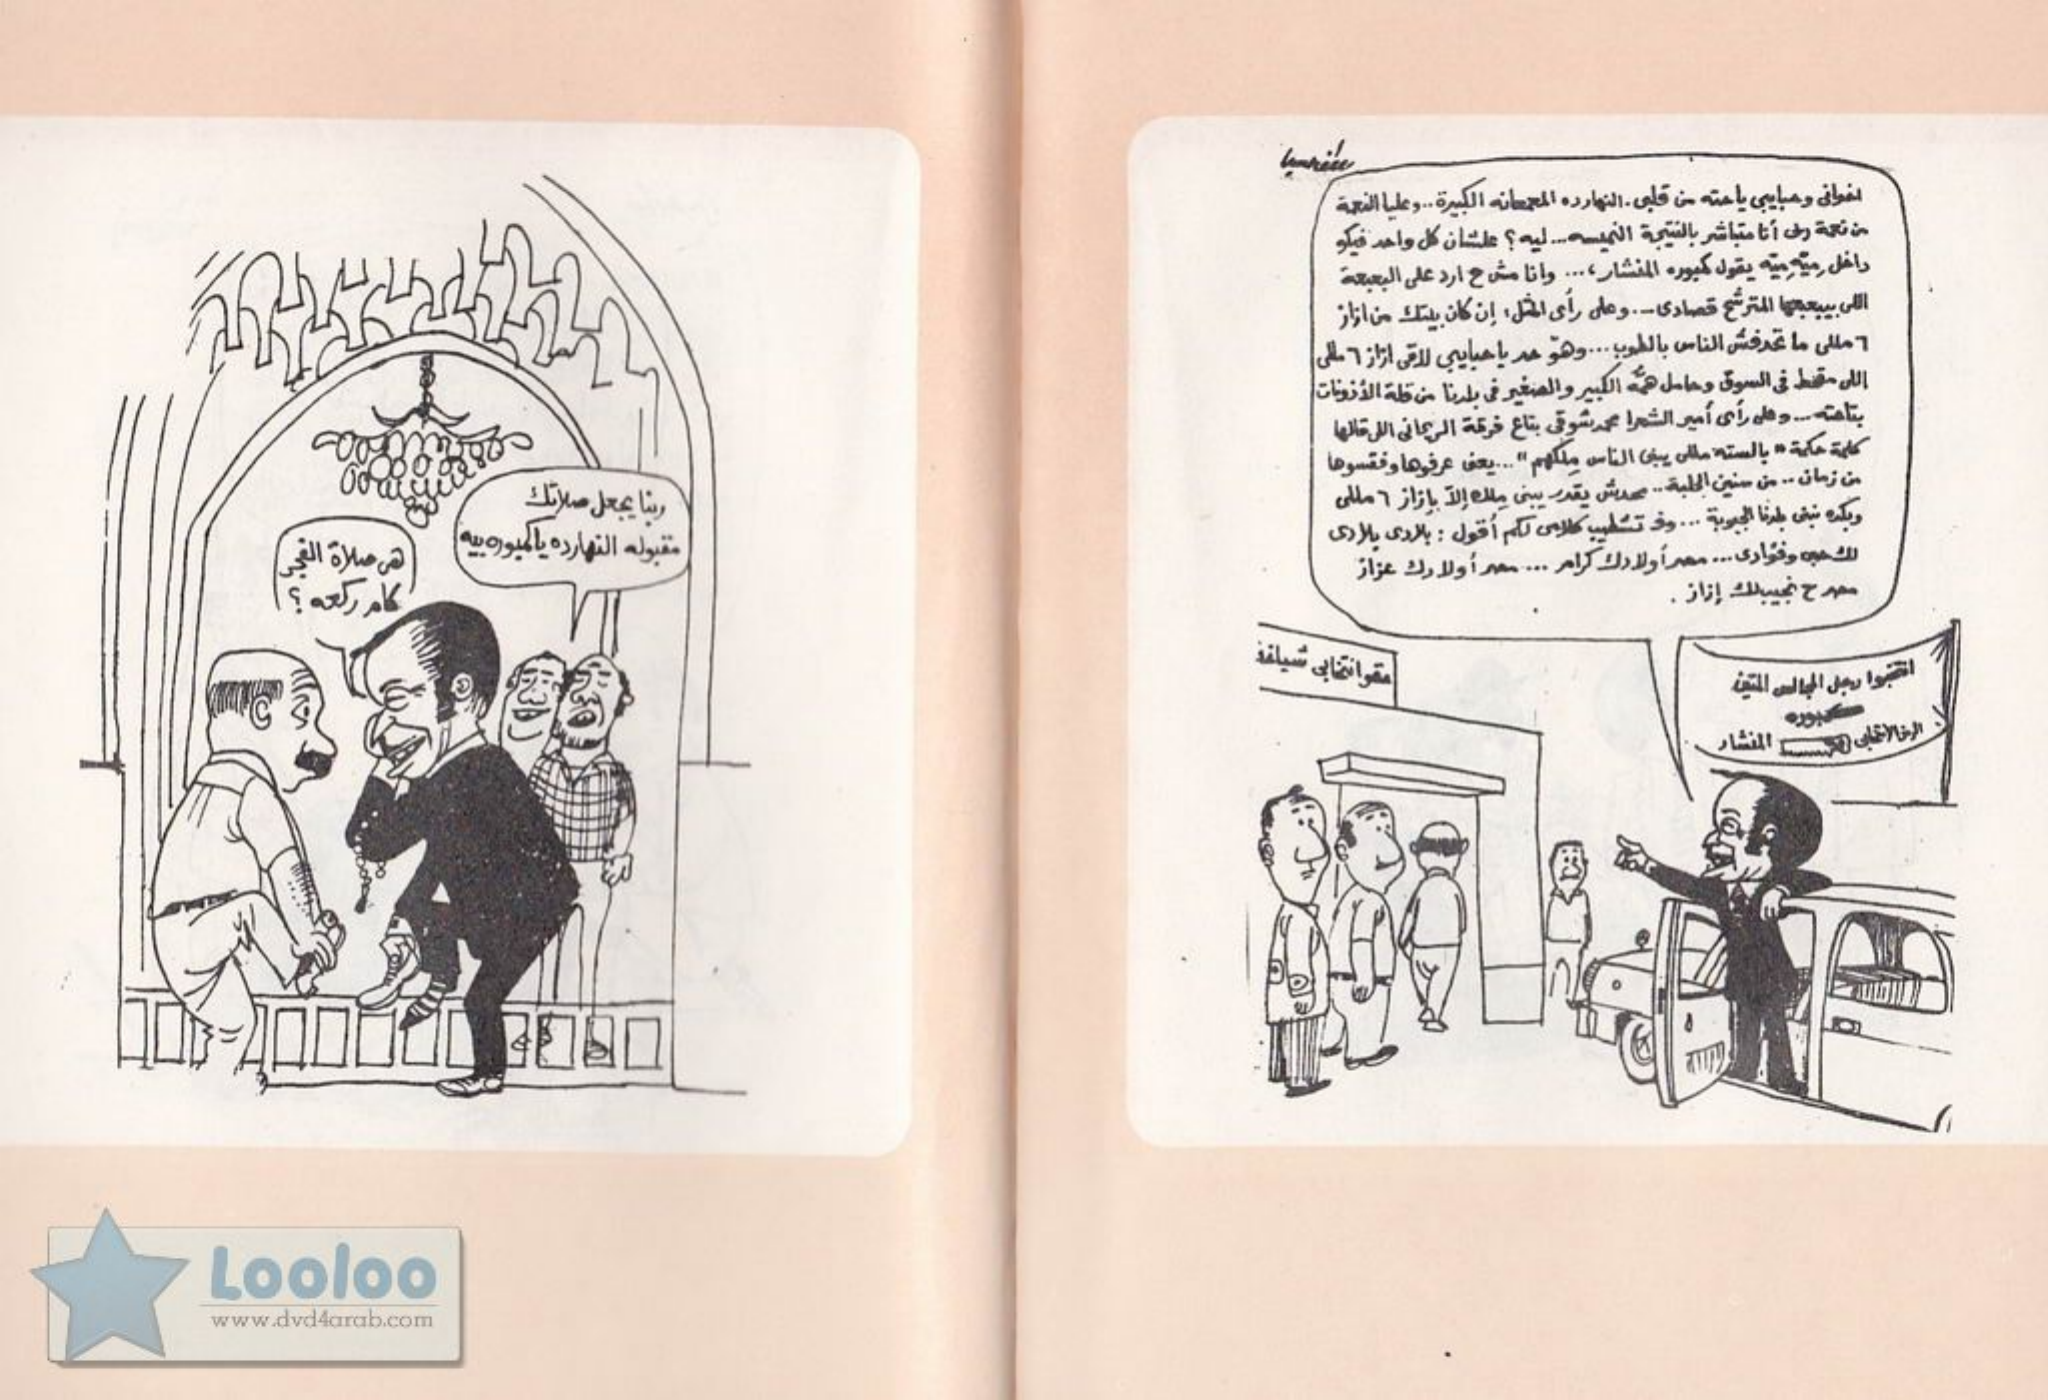 اخوانى وحبايبى ياحته من قلبى.. النهارده المعمعانه الكبيرة.. وعليا النعمة
من نعمة ربى أنا متباشر بالنتيجة النميسه... ليه؟ علشان كل واحد فيكو
داخل ميّه ميّه يقول كمبوره المنشار،... وانا مش ح ارد على البعبعة
اللى بيبعبعها المترشح قصادى... وعلى رأى المثل: إن كان بيتك من ازاز
٦ مللى ما تحدفش الناس بالطوب... وهوّ حد ياحبايبى لاقى ازاز ٦ مللى
اللى مقحط فى السوق وحامل همّه الكبير والصغير فى بلدنا من قلة الأذونات
بتاعته... وعلى رأى أمير الشعرا محمد شوقى بتاع فرقة الريحانى اللى قالها
كلمة حكمة "بالسته مللى يبنى الناس ملكهم"... يعنى عرفوها وفقسوها
من زمان.. من سنين.. محدش يقدر يبنى ملك إلاّ بإزاز ٦ مللى
وبكده نبنى بلدنا الحبوبة... وفـ تشطيب كلامى لكم أقول: بلادى بلادى
لك حبى وفؤادى... مصر أولادك كرام... مصر أولادك عزاز
مصر ح نجيبلك إزاز.
مقر انتخابى شياخة
انتخبوا رجل المجالس
كمبوره
الرمز الانتخابى المنشار
ربنا يجعل صلاتك
مقبوله النهارده ياكمبوره بيه
هى صلاة الفجر
كام ركعه؟
Looloo
www.dvd4arab.com